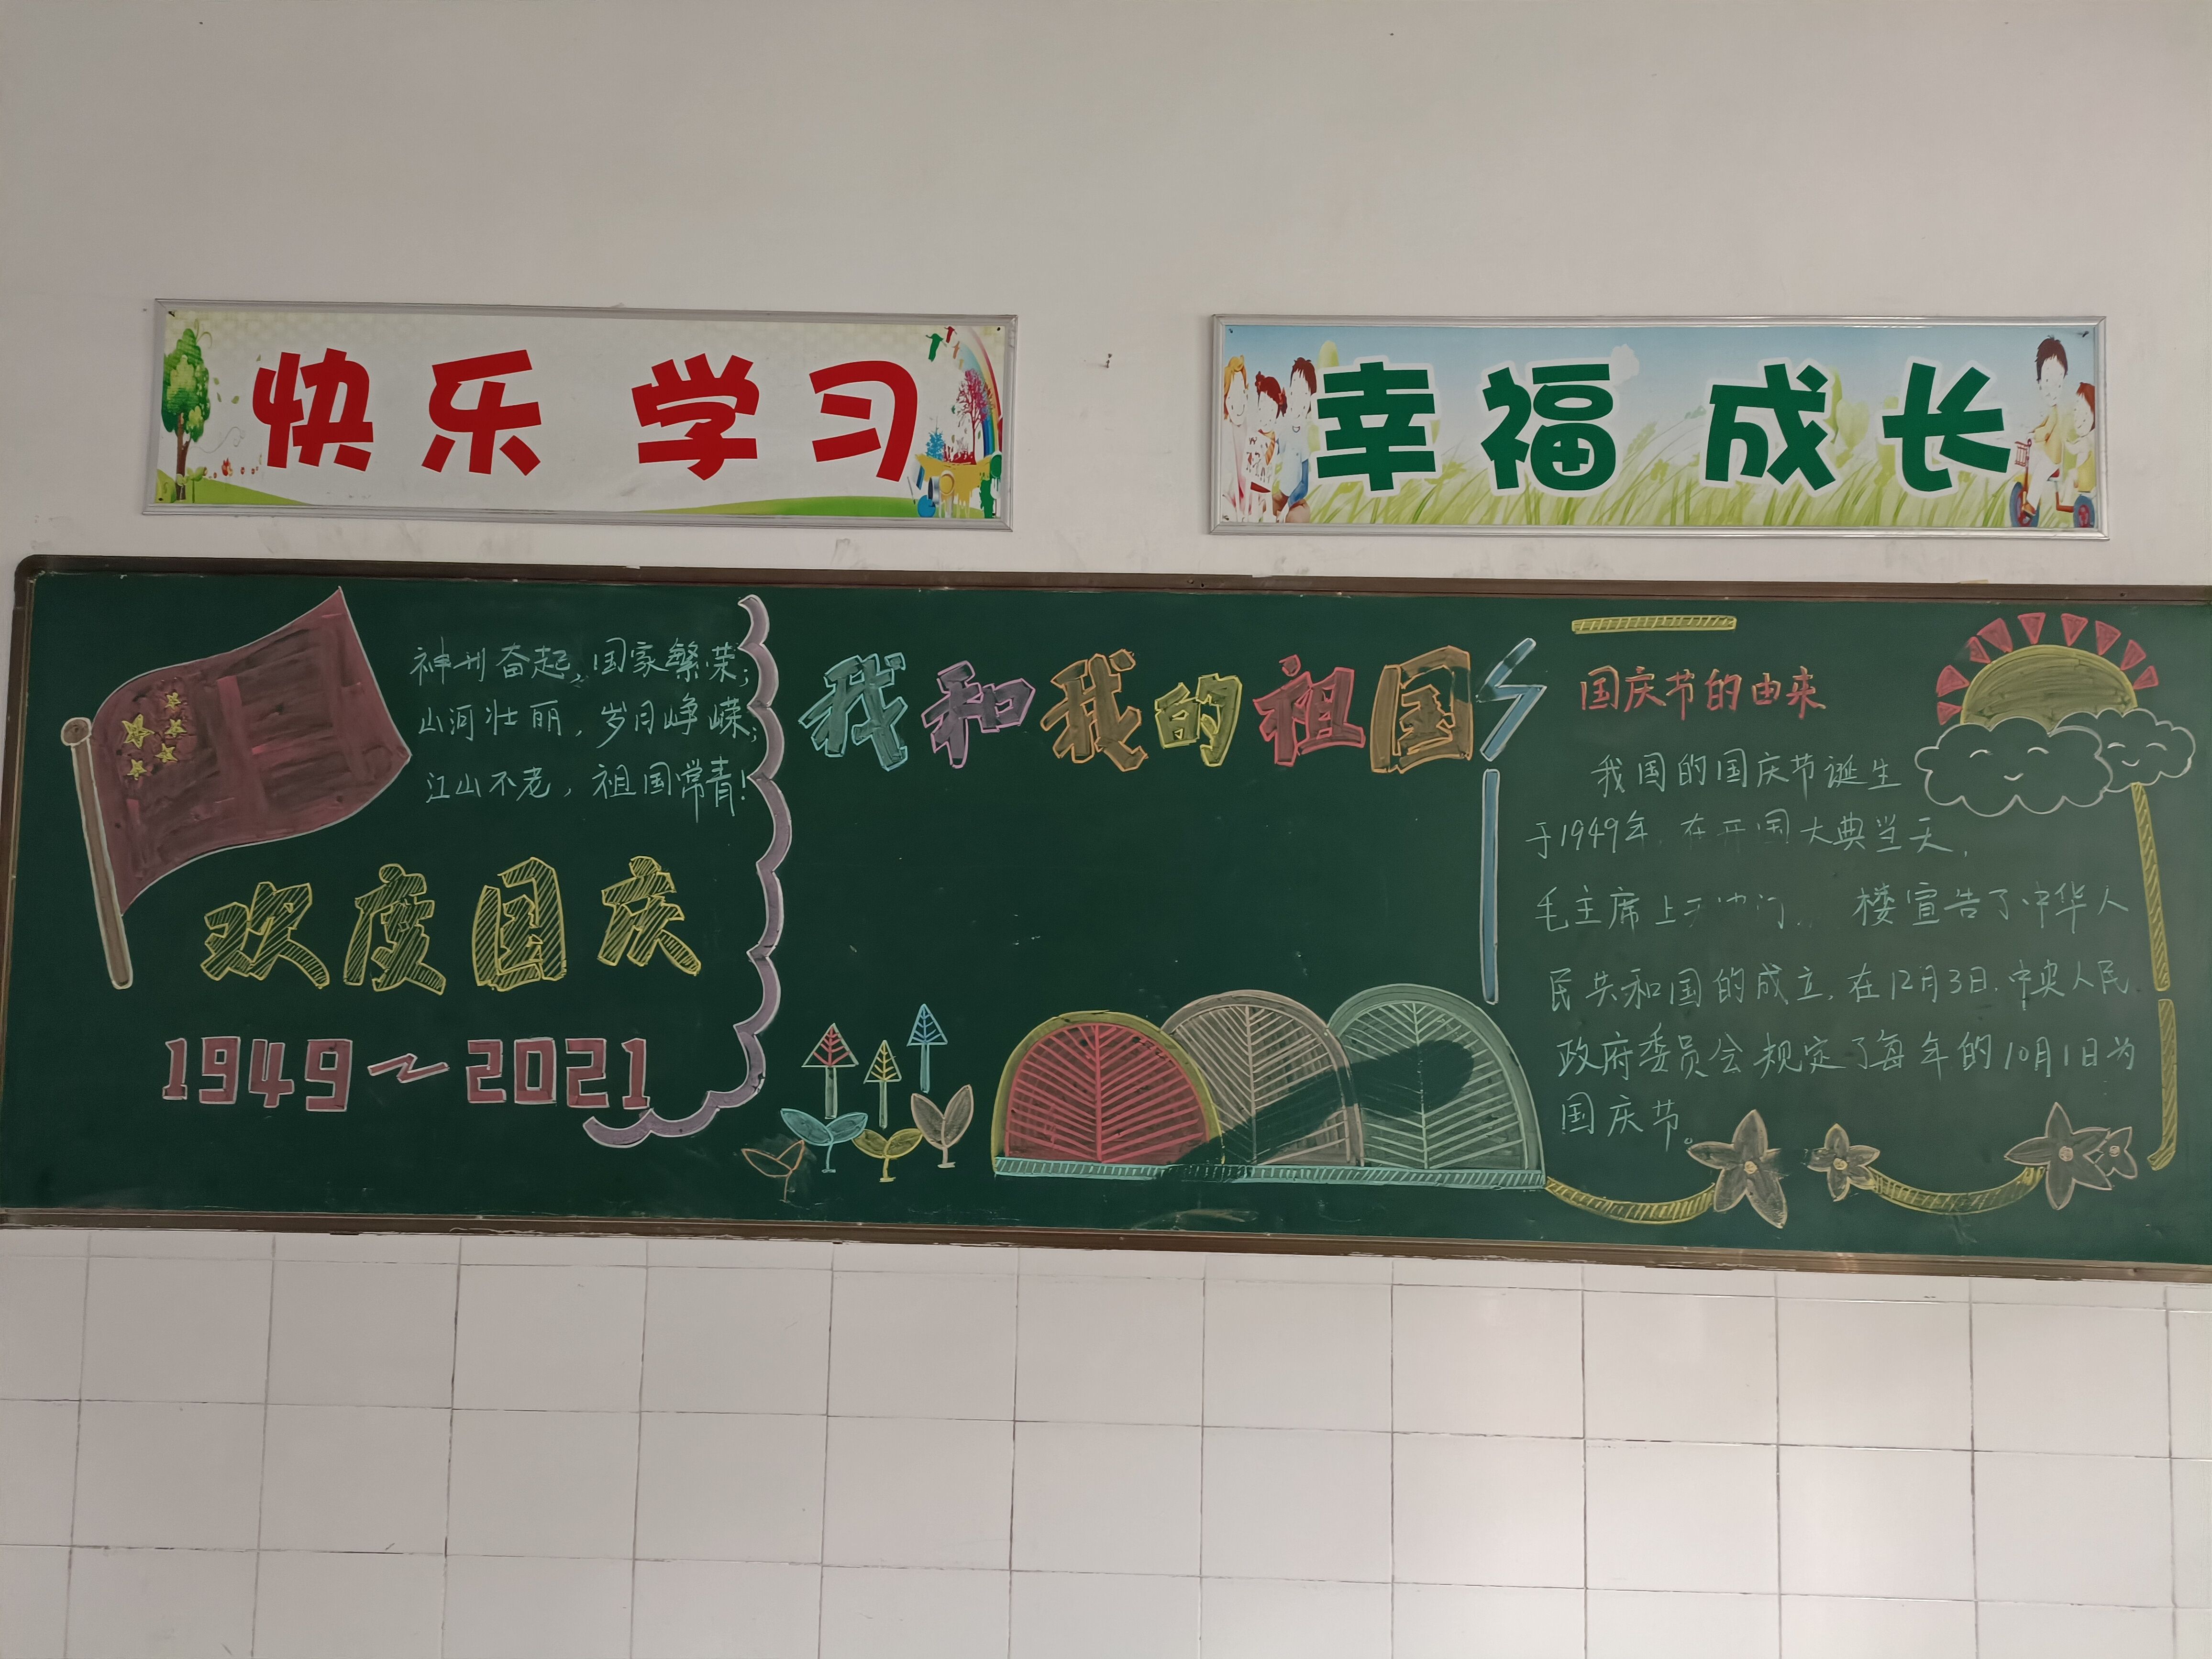 快乐 学习
幸福 成长
神州奋起，国家繁荣；
山河壮丽，岁月峥嵘；
江山不老，祖国常青！
欢度国庆
1949~2021
我和我的祖国
国庆节的由来
我国的国庆节诞生
于1949年，在开国大典当天，
毛主席上 门 楼宣告了中华人
民共和国的成立，在12月3日，中央人民
政府委员会规定了每年的10月1日为
国庆节。